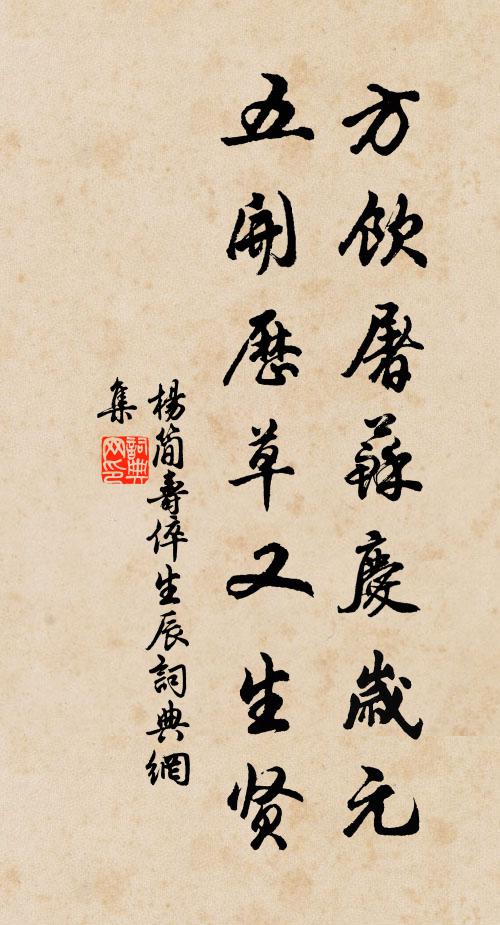 方飲屠蘇慶歲元
五開歷草又生贤
楊簡壽倅生辰詞典網
集
詞典
网印